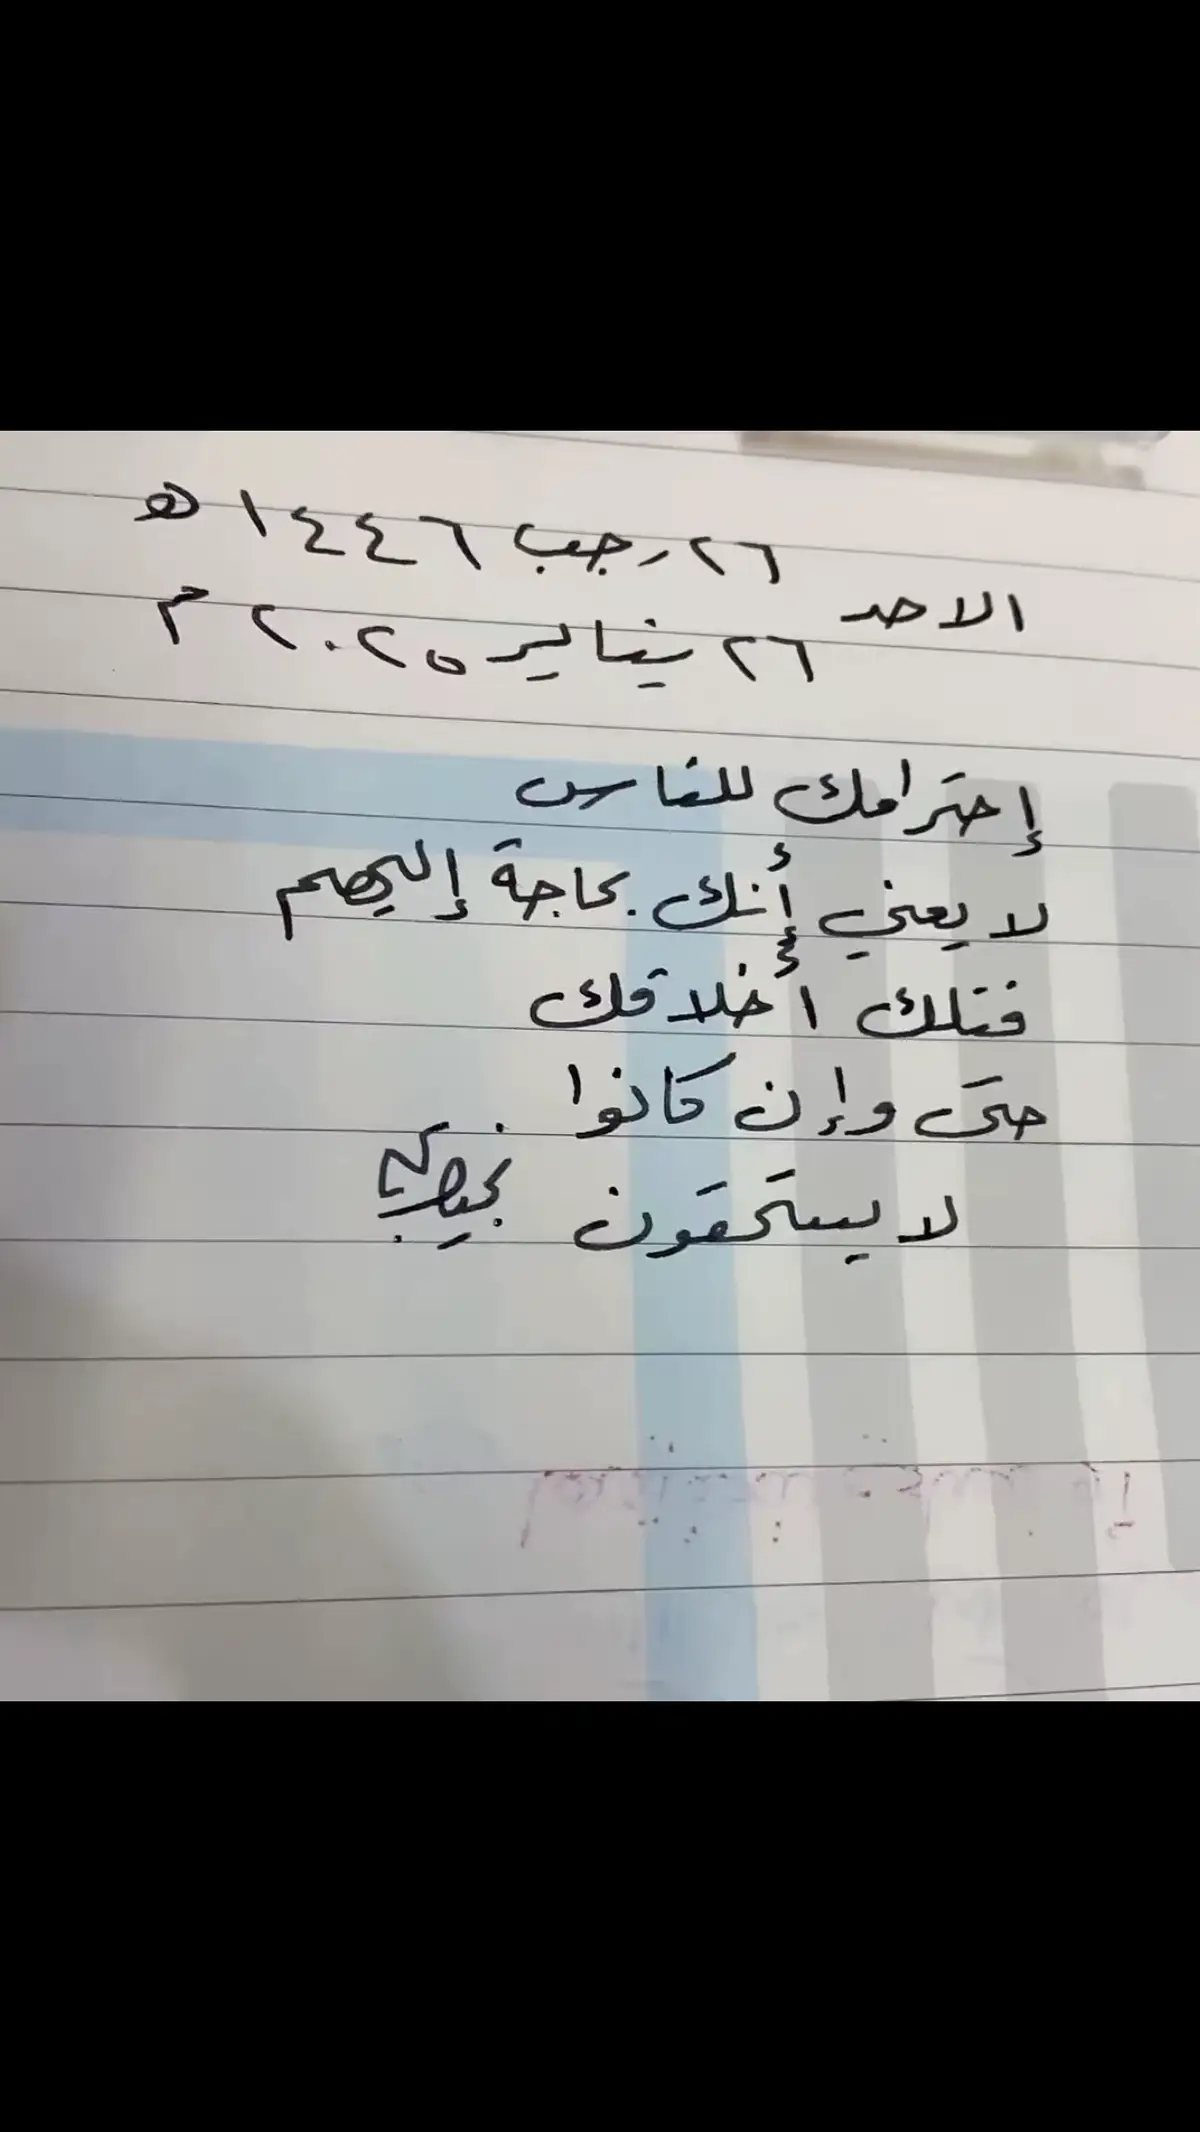 ٢٦ رجب ١٤٤٦ هـ
الاحد
٢٦ يناير ٢٠٢٥ م
إحترامك للناس
لا يعني أنك بحاجة إليهم
فتلك أخلاقك
حتى وإن كانوا
لا يستحقون